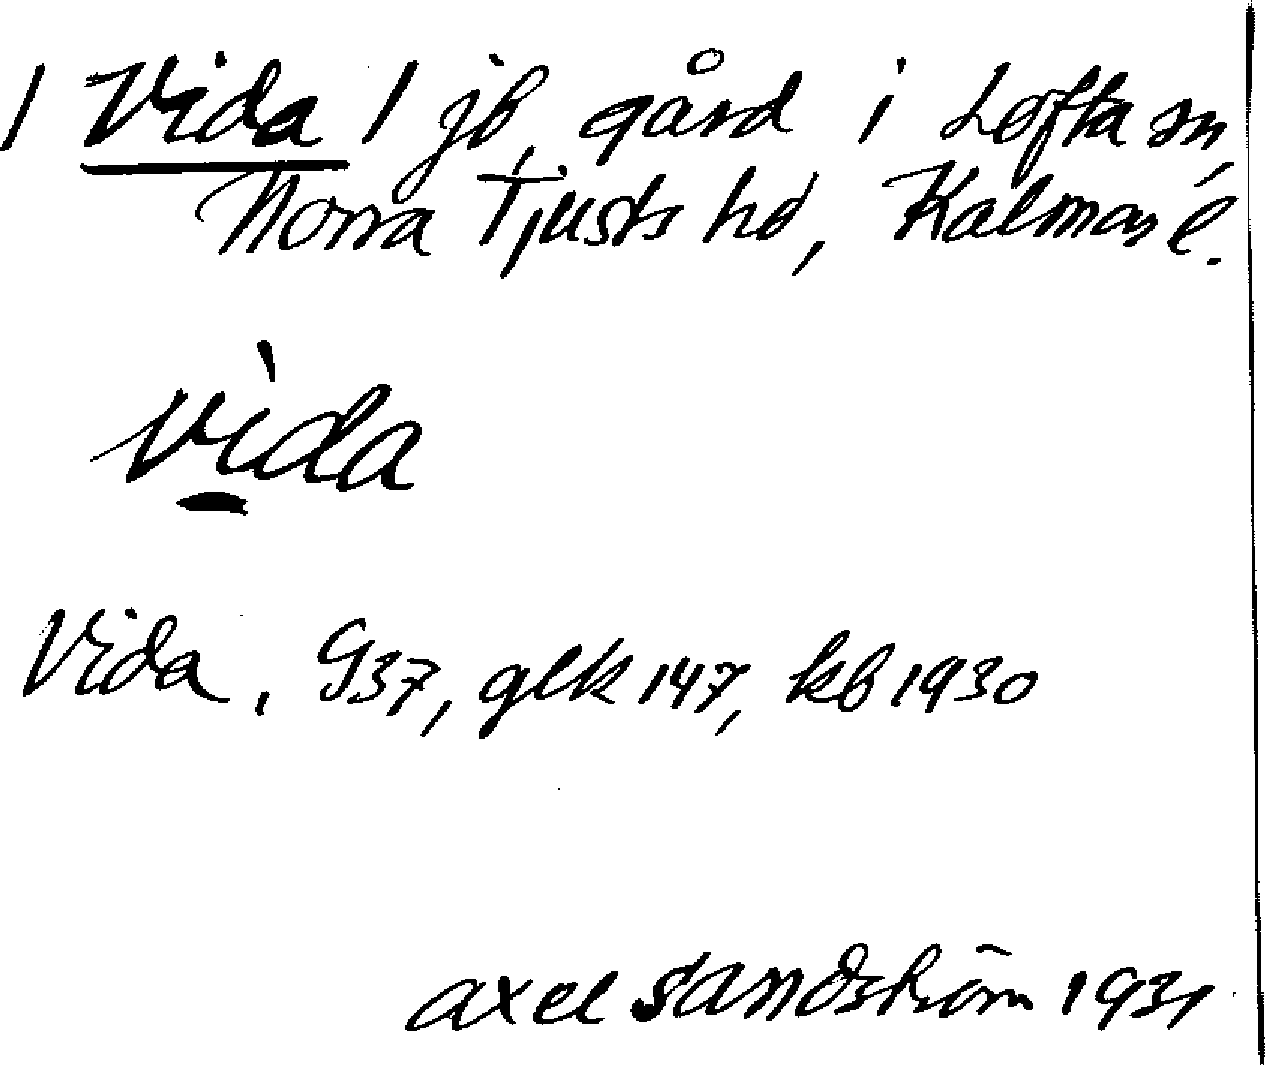 / Vida / jb, gård i Lofta sn,
Norra Tjusts hd, Kalmar l.
vìda
Vida, G37, glk 147, kb 1930
Axel Sandström 1931